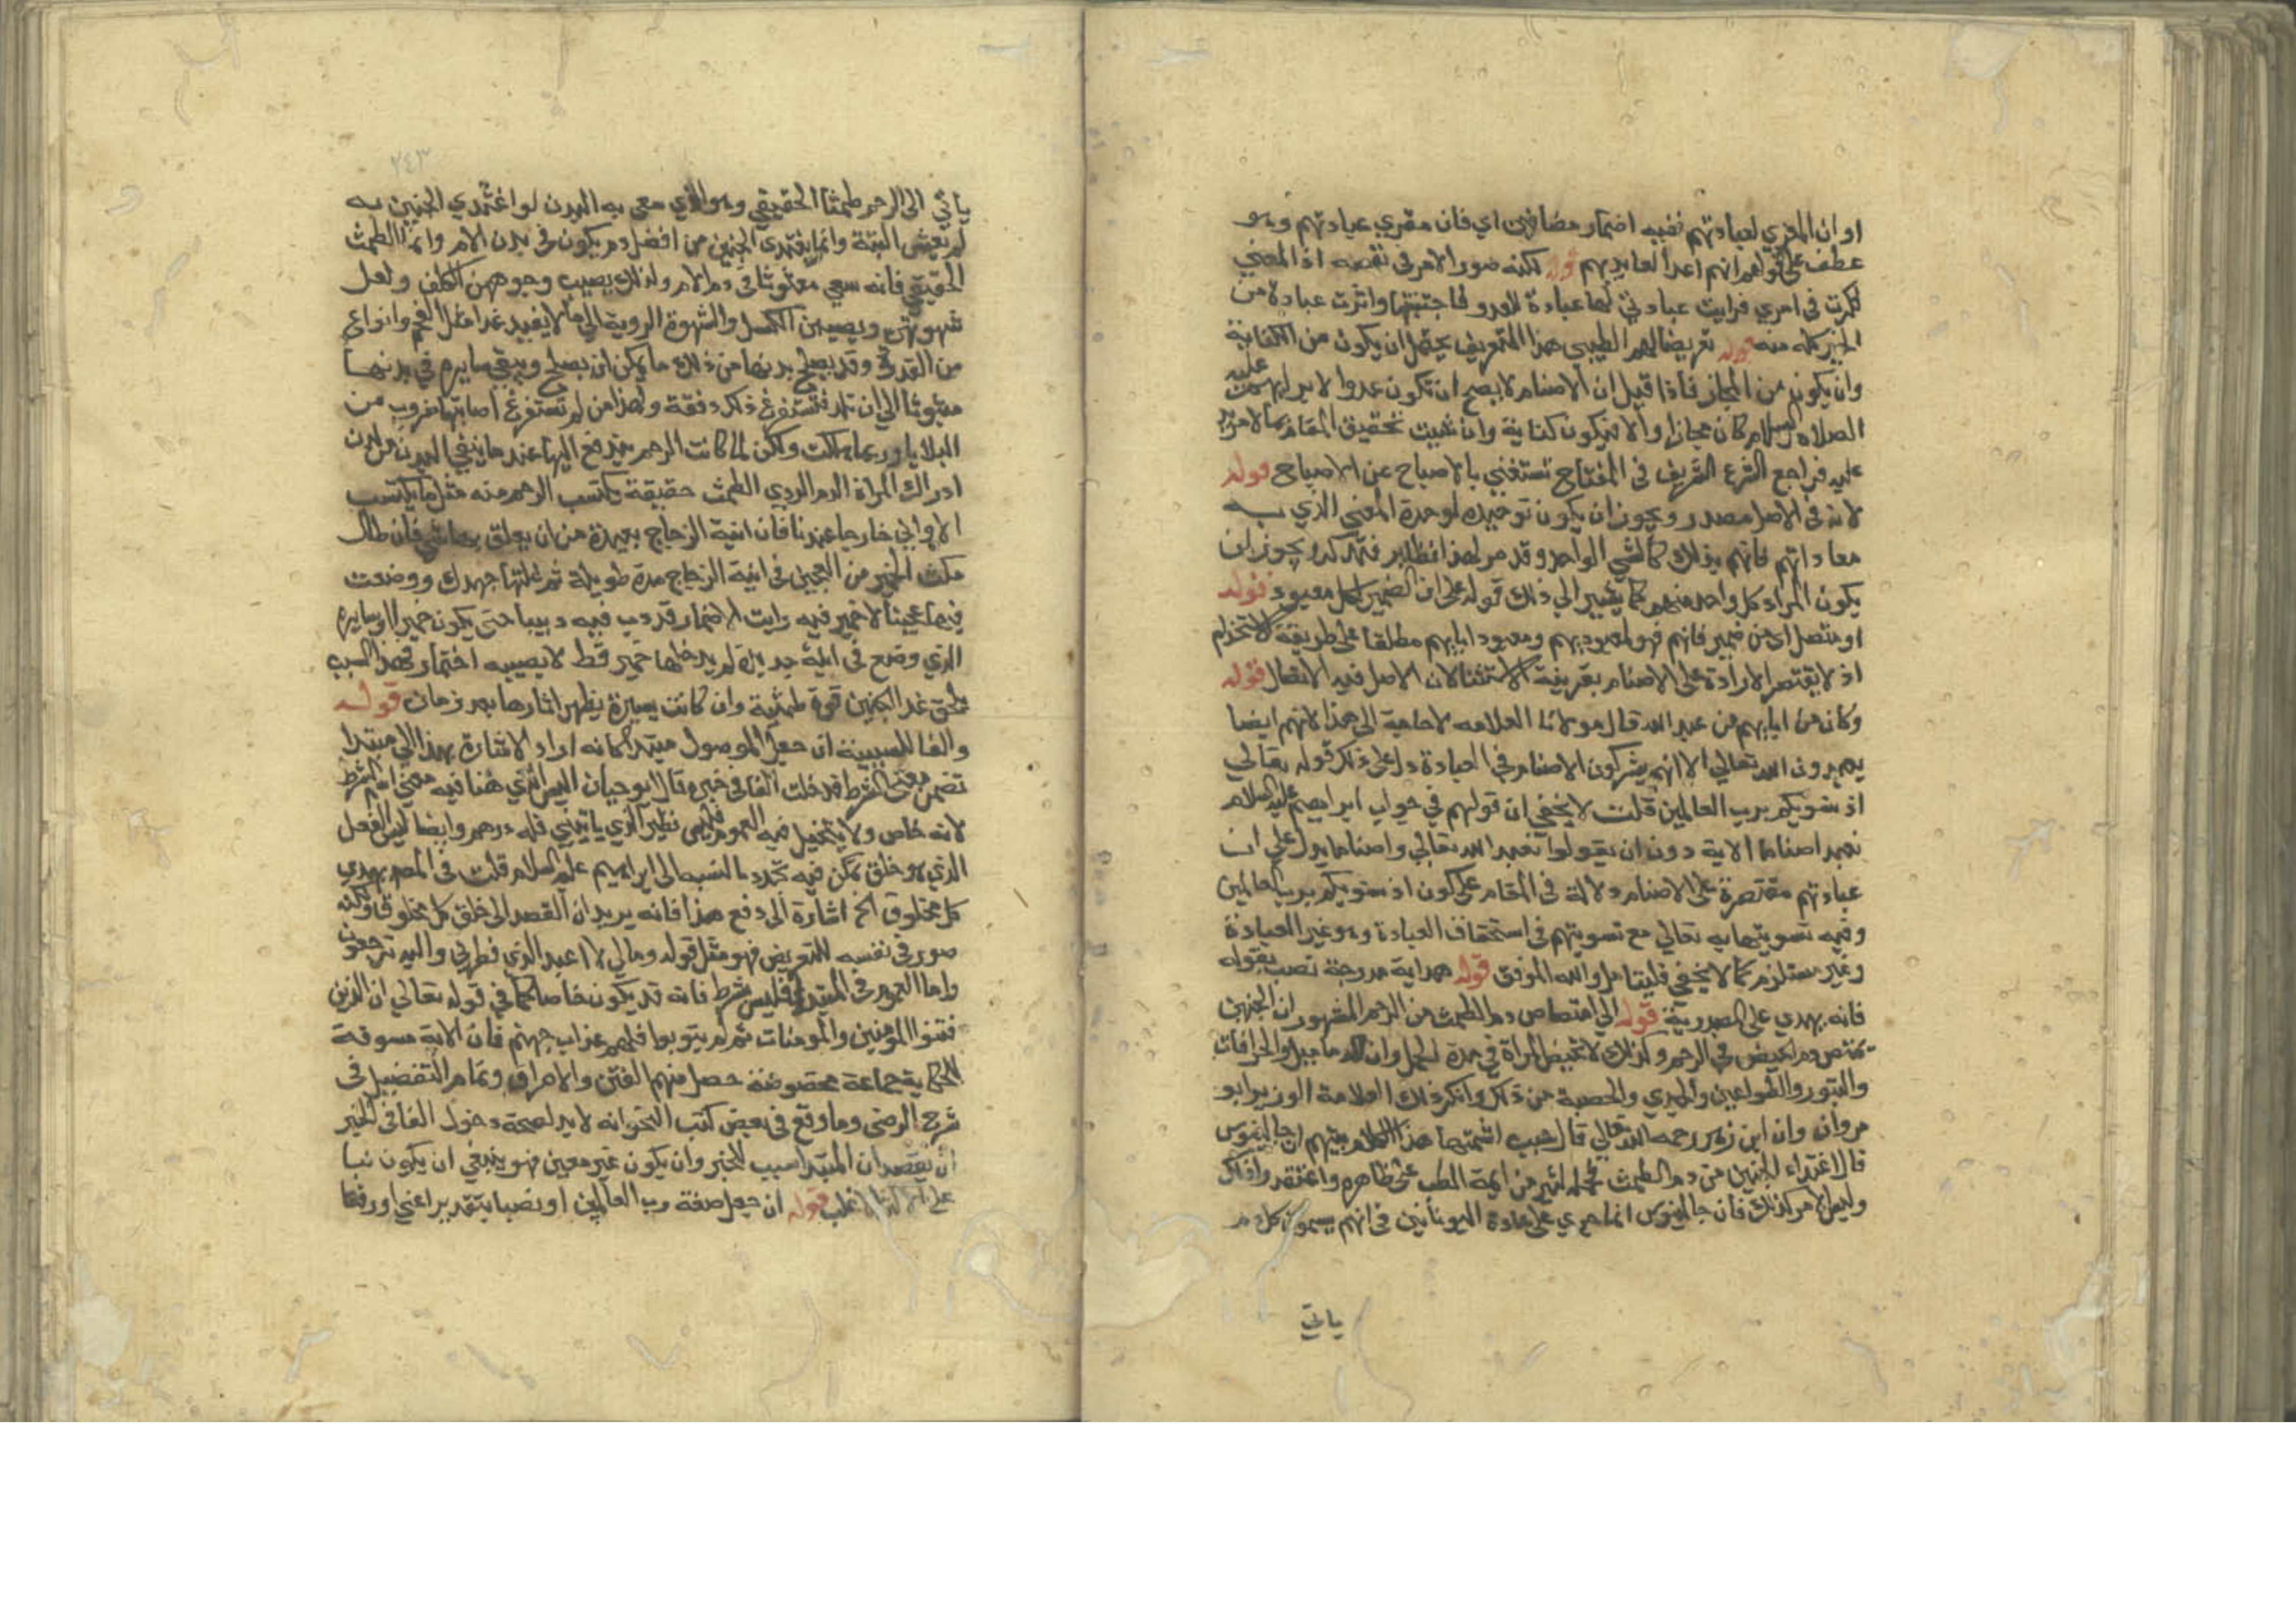 او ان المغري لعبادتهم ففيه اضمار مضافين اي فان مغري عبادتهم وهو
عطف على قوله انهم اعدا لعابديهم قوله لكنه صور الامر في نفسه اذ المعني
فكرت في امري فرايت عبادتي لها عبادة للعدو فاجتنبتها واثرت عبادة من
الخير كله منه قوله تعريضا لهم الطيبي هذا التعريض يحتمل ان يكون من الكناية
وان يكون من المجاز فاذا قيل ان الاصنام لا يصح ان تكون عدوا لابراهيم عليه
الصلاه والسلام كان مجازا والا فيكون كناية وان شيت تحقيق المقام بما لا مزيد
عليه فراجع الشرع الشريف في المفتاح تستغني بالاصباح عن الاصباح قوله
لانه في الاصل مصدر ويجوز ان يكون توحيده لوحدة المعني الذي به
معاداتهم فانهم بذلك كالشي الواحد وقد مر لهذا نظاير فتذكر ويجوز ان
يكون المراد كل واحد منهم كما يشير الي ذلك قوله على ان الضمير لكل معبود قوله
او متصل اي من ضمير فانهم فهو لمعبوديهم ومعبود اباېهم مطلقا على طريقة الاستخدام
اذ لا يقتصر الارادة على الاصنام بقرينة الاستثنا لان الاصل فيه الاتصال قوله
وكان من اباېهم من عبد الله قال مولانا العلامه لا حاجة الى هذا لانهم ايضا
يعبدون الله تعالي الا انهم يشركون الاصنام في العبادة دل على ذلك قوله تعالي
اذ نسويكم برب العالمين قلت لا يخفي ان قولهم في جواب ابراهيم عليه السلام
نعبد اصناما الاية دون ان يقولوا نعبد الله تعالي واصناما يدل علي ان
عبادتهم مقتصرة على الاصنام دلالة في المقام على كون اذ نسويكم برب العالمين
وفيه تسويتها به تعالي مع تسويتهم في استحقاق العبادة وهو غير العبادة
وغير مستلزم كما لا يخفي فليتامل والله الموفق قوله هداية مدرجة نصب بقوله
فانه يهدي على المصدرية قوله الي امتصاص دم الطمث من الرحم المشهور ان الجنين
يمتص دم الحيض في الرحم وكذلك لا تحيض المراة في مدة الحمل وان
والبثور والطواعين والجدري والحصبة من ذلك وانكر ذلك العلامة الوزير ابو
مروان وان ابن زهر رحمه الله تعالي قال سبب اشتهار هذا الكلام بينهم ان جالينوس
قال اغتداء الجنين من دم الطمث فحمله كثير من ايمة الطب على ظاهره واعتقد وا ذلك
وليس الامر كذلك فان جالينوس انما جري على عادة اليونانين في انهم يسمون كل دم
ياتي
٢٤٣
ياتي الى الرحم طمثا الحقيقي وهو الذي معي به البدن لو اغتدي الجنين به
لم يعش البتة وانما يغتدي الجنين من افضل دم يكون في بدن الام واما الطمث
الحقيقي فانه سعي مبثوثا في دم الام ولذلك يصيب وجوههن الكلف ولعل
شهوتهن ويصيبهن الكسل والشهوة الردية الي ما لا يفيد غدا مثل الفحم وانواع
من القدر وقد يصلح بدنها من ذلك ما يمكن ان يصلح ويبقي سايره في بدنها
مبثوثا الي ان تلد فتستفرغ ذلك دفقة ولهذا من لم تستفرغ اصابتها ضروب من
البلايا وربما هلكت ولكن لما كانت الرحم يندفع اليها عند ما ينقي البدن من لدن
ادراك المراة الدم الردي الطمث حقيقة يكتسب الرحم منه مثل ما يكتسب
الاواني خارجا عندنا فان انية الزجاج بعيدة من ان يعلق بها شي فان طال
مكث الخمير من العجين في انية الزجاج مدة طويلة ثم غسلتها جهدك ووضعت
فيها عجينا لا خمير فيه رايت الاختمار قد دب فيه دبيبا حتى يكون خميرا وسايره
الذي وضع في انية جديدة لم يدخلها خمير قط لا يصيبه اختمار فهذا السبب
يلحق غدا الجنين قوة طمثية وان كانت يسيرة يظهر اثارها بعد زمان قوله
والفا للسببية ان جعل الموصول مبتدا كانه اراد الاشارة بهذا الي مبتدا
تضمن معنى الشرط فدخلت الفا في خبره قال ابو حيان ليس الذي هنا فيه معني اسم الشرط
لانه خاص ولا يتخيل فيه العموم فليس نظير الذي ياتيني فله درهم وايضا ليس الفعل
الذي هو خلق يمكن فيه تجدد بالنسبه الى ابراهيم عليه السلام قلت في المصير يهدي
كل مخلوق الخ اشارة الى دفع هذا فانه يريد ان القصد الى خلق كل مخلوق ولكنه
صور في نفسه للتعريض فهو مثل قوله ومالي لا اعبد الذي فطرني واليه ترجعون
واما العموم في المبتدا فليس بشرط فانه قد يكون خاصا كما في قوله تعالي ان الذين
فتنوا المومنين والمومنات ثم لم يتوبوا فلهم عذاب جهنم فان الاية مسوقة
لحكاية جماعة مخصوصة حصل منهم الفتن والاحراق وتمام التفصيل في
شرح الرضى وما وقع في بعض كتب النحو انه لا بد لصحة دخول الفا في الخبر
ان يقصد ان المبتدا سبب للخبر وان يكون غير معين فهو ينبغي ان يكون نبا
على الاغلب قوله ان جعل صفة رب العالمين او نصبا بتقدير اعني او رفعا